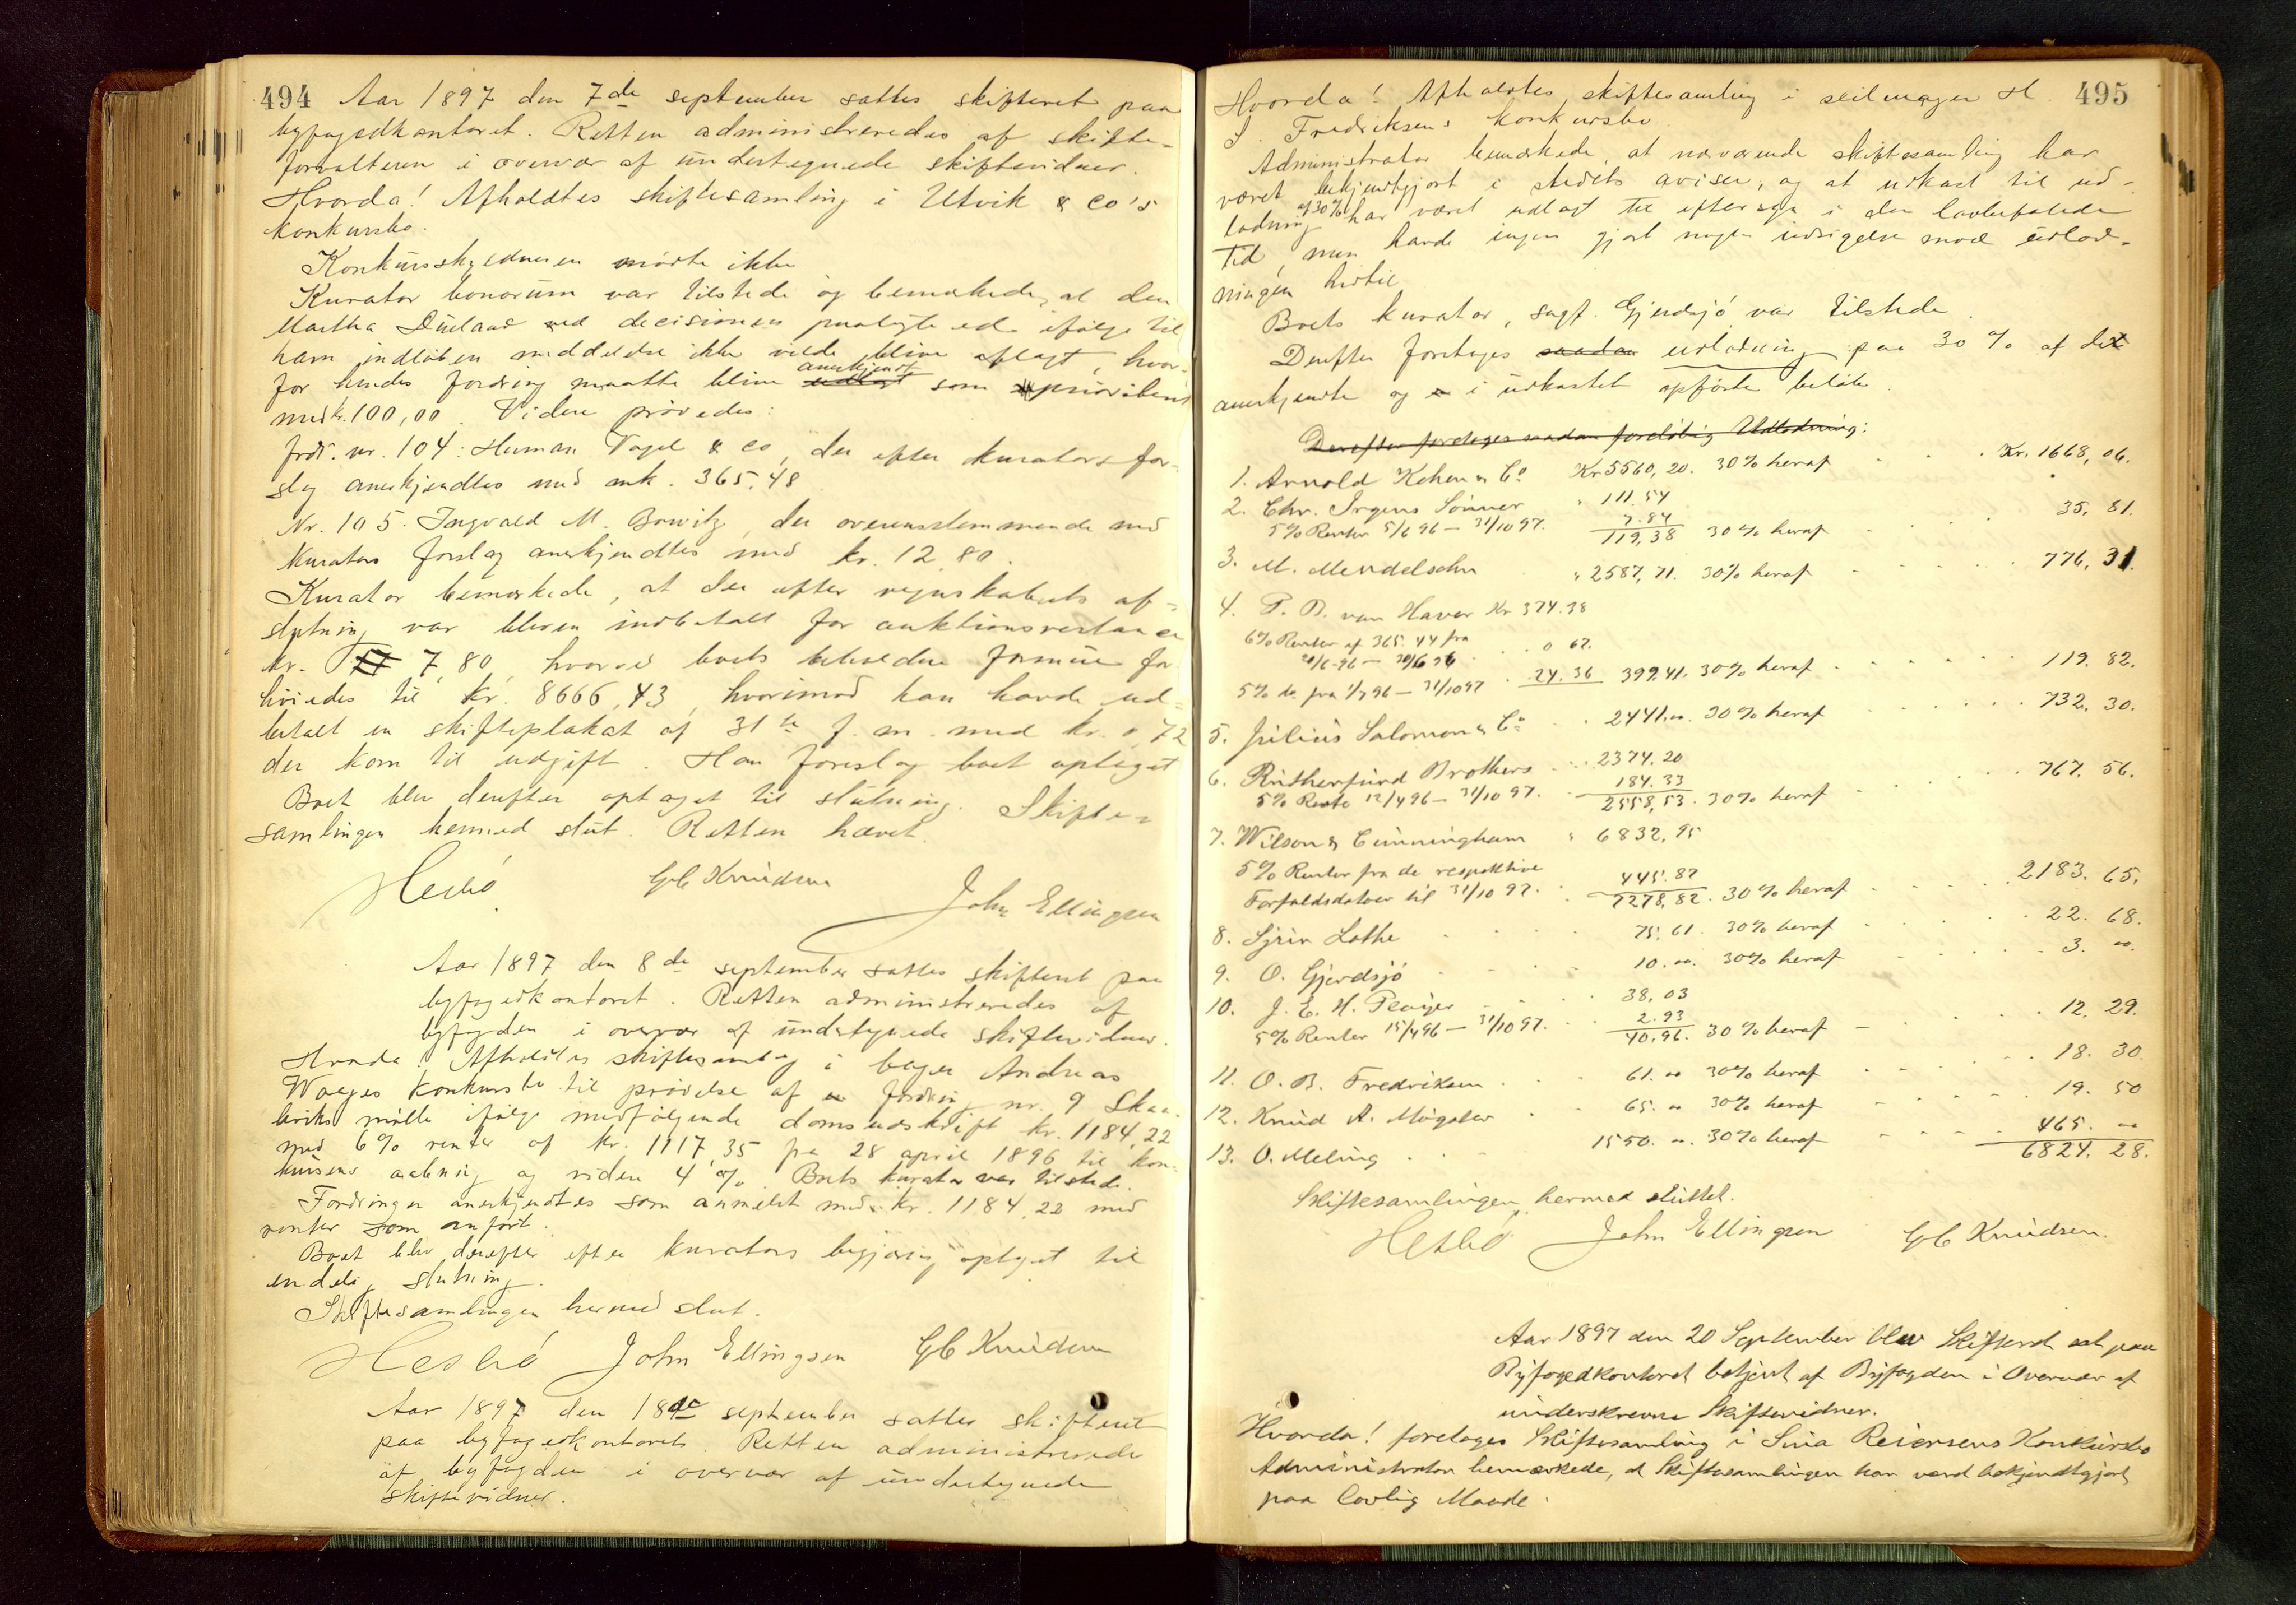 494 Aar 1897 den 7de september sattes skifteret paa
byfogedkontoret. Retten administreredes af skifte-
forvalteren i overvær af undertegnede skiftevidner.
Hvorda! Afholdtes skiftesamling i Utvik & Co's
konkursbo.
Konkursskyldneren mødte ikke
Kurator bonorum var tilstede og bemærkede, at den
Martha ved decisionen paalagte ed ifølge til
ham indløben meddelelse ikke vilde blive aflagt, hvor-
for hendes fordring maatte blive anerkjendt som
med kr. 100,00. Videre prøvedes:
frdr. nr. 104: Herman Vogel & Co, der efter kurators for-
slag anerkjendtes med mk. 365,48
Nr. 105. Ingvald M. Bowitz, der overensstemmende med
kurators forslag anerkjendtes med kr. 12,80.
Kurator bemærkede, at der efter regnskabets af-
slutning var bleven indbetalt for auktionsrestance
kr. 7,80, hvorved boets beholdne formue for-
høiedes til kr. 8666,43, hvorimod han havde ud-
betalt en skifteplakat af 31te f. m. med kr. 0,72
der kom til udgift. Han foreslog boet optaget
Boet blev derefter optaget til slutning. Skifte-
samlingen hermed slut. Retten hævet.
Hesbø GC Knudsen John Ellingsen
Aar 1897 den 8de september sattes skifteret paa
byfogedkontoret. Retten administreredes af
byfogden i overvær af undertegnede skiftevidner.
Hvorda! Afholdtes skiftesamling i bager Andreas
Waages konkursbo til prøvelse af fordring nr. 9 Skaa-
leviks mølle ifølge medfølgende domsudskrift kr. 1184,22
med 6% renter af kr. 1117,35 fra 28 april 1896 til kon-
kursens aabning og siden 4%. Boets kurator var tilstede.
Fordringen anerkjendtes som anmeldt med kr. 1184,22 med
renter som anført.
Boet blev derefter efter kurators begjæring optaget til
endelig slutning.
Skiftesamlingen hermed slut.
Hesbø John Ellingsen GC Knudsen
Aar 1897 den 18de september sattes skifteret
paa byfogedkontoret. Retten administrerede
af byfogden i overvær af undertegnede
skiftevidner.
Hvorda! Afholdtes skiftesamling i seilmager H. 495
S. Fredriksens konkursbo
Administrator bemærkede, at nærværende skiftesamling har
været bekjendtgjort i stedets aviser, og at udkast til ud-
lodning af 30% har været udlagt til eftersyn i den lovbefalede
tid, men havde ingen gjort nogen indsigelse mod udlod-
ningen hidtil
Boets kurator, sagf. Gjerdsjø var tilstede.
Derefter foretoges saadan udlodning paa 30% af det
anerkjendte og i udkastet opførte beløb.
Derefter foretoges saadan foreløbig Udlodning:
1. Arnold Kohen & Co Kr 5560,20. 30% heraf Kr. 1668,06.
2. Chr. Irgens Sønner " 111.54
5% Renter 5/6 96 – 31/10 97. 7.84
119,38 30% heraf 35,81.
3. M. Mendelsohn " 2587,71. 30% heraf 776,31.
4. P. B. van Haver Kr 374.38
6% Renter af 365.44 fra
20/6-96 – 30/6 96 0 67.
5% do fra 1/7 96 – 31/10 97 24.36 399,41. 30% heraf 119.82.
5. Julius Salomon & Co 2441.00. 30% heraf 732.30.
6. Rutherfurd Brothers 2374.20
5% Rente 12/4 96 – 31/10 97. 184.33
2558,53. 30% heraf 767.56.
7. Wilson & Cunningham " 6832,95
5% Renter fra de respektive
Forfaldsdatoer til 31/10 97. 445.87
7278,82. 30% heraf 2183.65.
8. Sjur Lothe 75.61. 30% heraf 22.68.
9. O. Gjerdsjø 10.00. 30% heraf 3.00.
10. J. E. H. 38,03
5% Renter 15/4 96 – 31/10 97. 2.93
40,96. 30% heraf 12.29.
11. O. B. Fredriksen 61.00 30% heraf 18.30.
12. Knud A. Møgster 65.00 30% heraf 19.50
13. O. Meling 1550.00. 30% heraf 465.00
6824.28.
Skiftesamlingen hermed sluttet.
Hesbø John Ellingsen GC Knudsen.
Aar 1897 den 20 September blev Skifteret sat paa
Byfogedkontoret betjent af Byfogden i Overvær af
underskrevne Skiftevidner.
Hvorda! foretoges Skiftesamling i Sina Reiersens Konkursbo
Administrator bemærkede, at Skiftesamlingen har været bekjendtgjort
paa lovlig Maade.